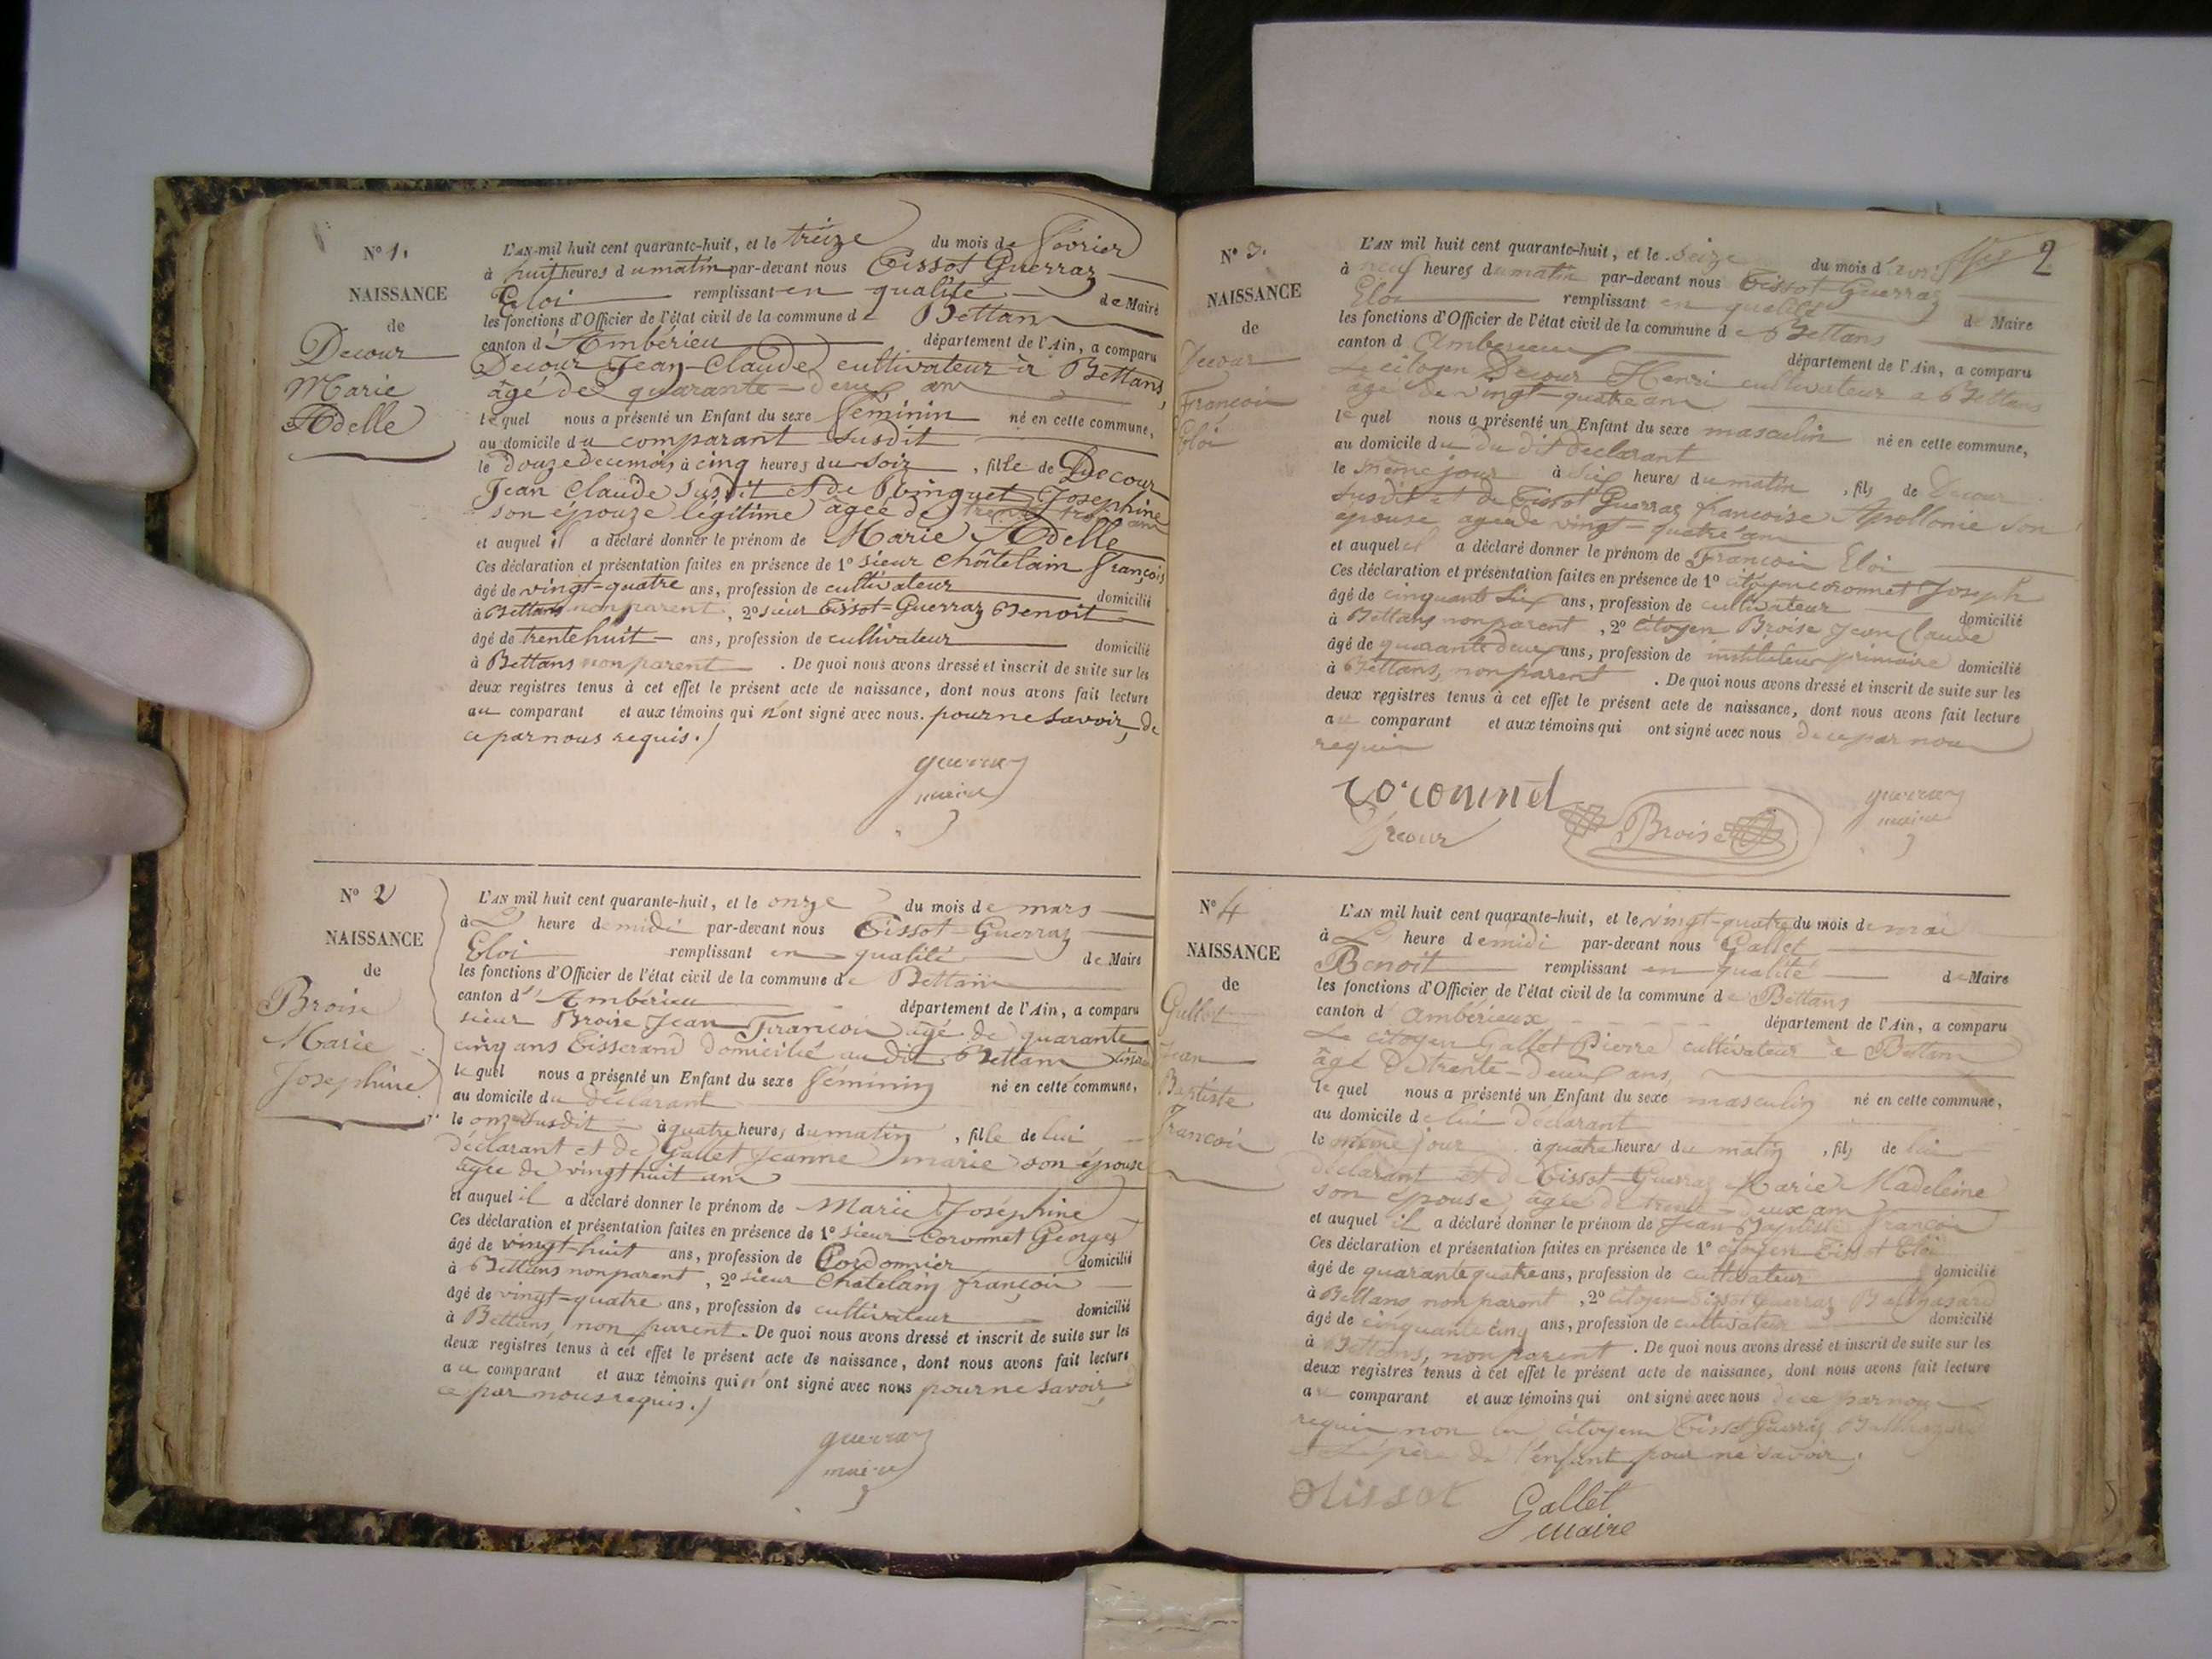 N° 1.
NAISSANCE
de
Decour
Marie
Adelle
L'AN mil huit cent quarante-huit, et le treize du mois de février
à huit heures du matin par-devant nous Tissot Guerraz
Eloi remplissant en qualité de Maire
les fonctions d'Officier de l'état civil de la commune de Bettans
canton d'Ambérieu département de l'Ain, a comparu
Decour Jean-Claude cultivateur à Bettans,
âgé de quarante-deux ans
lequel nous a présenté un Enfant du sexe féminin né en cette commune,
au domicile du comparant susdit
le douze du mois à cinq heures du soir, fille de Decour
Jean Claude susdit et de Josephine
son épouze légitime âgée de trente trois ans
et auquel il a déclaré donner le prénom de Marie Adelle
Ces déclaration et présentation faites en présence de 1° sieur Châtelain françois
âgé de vingt-quatre ans, profession de cultivateur domicilié
à Bettans non parent, 2° sieur Tissot-Guerraz Benoit
âgé de trente huit ans, profession de cultivateur domicilié
à Bettans non parent. De quoi nous avons dressé et inscrit de suite sur les
deux registres tenus à cet effet le présent acte de naissance, dont nous avons fait lecture
au comparant et aux témoins qui n'ont signé avec nous. pour ne savoir, de
ce par nous requis./
guerraz
maire
N° 2
NAISSANCE
de
Broise
Marie
Josephine
L'AN mil huit cent quarante-huit, et le onze du mois de mars
à L' heure de midi par-devant nous Tissot-Guerraz
Eloi remplissant en qualité de Maire
les fonctions d'Officier de l'état civil de la commune de Bettans
canton d'Ambérieu département de l'Ain, a comparu
sieur Broise Jean François âgé de quarante
cinq ans Tisserand domicilié au dit Bettans
lequel nous a présenté un Enfant du sexe féminin né en cette commune,
au domicile du déclarant
le onze susdit à quatre heures du matin, fille de lui
déclarant et de Gallet Jeanne marie son épouse
âgée de vingt huit ans
et auquel il a déclaré donner le prénom de Marie Joséphine
Ces déclaration et présentation faites en présence de 1° sieur Coronnet Georges
âgé de vingt-huit ans, profession de Cordonnier domicilié
à Bettans non parent, 2° sieur Chatelain françois
âgé de vingt-quatre ans, profession de cultivateur domicilié
à Bettans, non parent. De quoi nous avons dressé et inscrit de suite sur les
deux registres tenus à cet effet le présent acte de naissance, dont nous avons fait lecture
au comparant et aux témoins qui n'ont signé avec nous pour ne savoir
ce par nous requis./
guerraz
maire
2
N° 3.
NAISSANCE
de
Decour
François
Eloi
L'AN mil huit cent quarante-huit, et le seize du mois d'avril
à neuf heures du matin par-devant nous Tissot-Guerraz
Eloi remplissant en qualité de Maire
les fonctions d'Officier de l'état civil de la commune de Bettans
canton d'Ambérieux département de l'Ain, a comparu
Le citoyen Decour Henri cultivateur à Bettans
âgé de vingt-quatre ans
lequel nous a présenté un Enfant du sexe masculin né en cette commune,
au domicile du du dit déclarant
le même jour à six heures du matin, fils de Decour
susdit et de Tissot Guerraz françoise Apollonie son
épouse agée de vingt-quatre ans
et auquel il a déclaré donner le prénom de François Eloi
Ces déclaration et présentation faites en présence de 1° citoyen coronnet Joseph
âgé de cinquante six ans, profession de cultivateur domicilié
à Bettans non parent, 2° Citoyen Broise Jean Claude
âgé de quarante deux ans, profession de instituteur primaire domicilié
à Bettans, non parent. De quoi nous avons dressé et inscrit de suite sur les
deux registres tenus à cet effet le présent acte de naissance, dont nous avons fait lecture
au comparant et aux témoins qui ont signé avec nous de ce par nous
requis
coronnet
Decour
Broise
guerraz
maire
N° 4
NAISSANCE
de
Gallet
Jean
Baptiste
François
L'AN mil huit cent quarante-huit, et le vingt-quatre du mois de mai
à L' heure de midi par-devant nous Gallet
Benoit remplissant en qualité de Maire
les fonctions d'Officier de l'état civil de la commune de Bettans
canton d'Ambérieux département de l'Ain, a comparu
Le citoyen Gallet Pierre cultivateur à Bettans
âgé de trente-deux ans,
lequel nous a présenté un Enfant du sexe masculin né en cette commune,
au domicile de lui déclarant
le même jour à quatre heures du matin, fils de lui
déclarant et de Tissot-Guerraz Marie Madeleine
son épouse, âgée de trente-deux ans
et auquel il a déclaré donner le prénom de Jean Baptiste françois
Ces déclaration et présentation faites en présence de 1° citoyen Tissot Eloi
âgé de quarante quatre ans, profession de cultivateur domicilié
à Bettans non parent, 2° citoyen Tissot Guerraz Balthasard
âgé de cinquante cinq ans, profession de cultivateur domicilié
à Bettans, non parent. De quoi nous avons dressé et inscrit de suite sur les
deux registres tenus à cet effet le présent acte de naissance, dont nous avons fait lecture
au comparant et aux témoins qui ont signé avec nous de ce par nous
requis non le citoyen Tissot Guerraz Balthazard
et le père de l'enfant pour ne savoir;
tissot
Gallet
maire